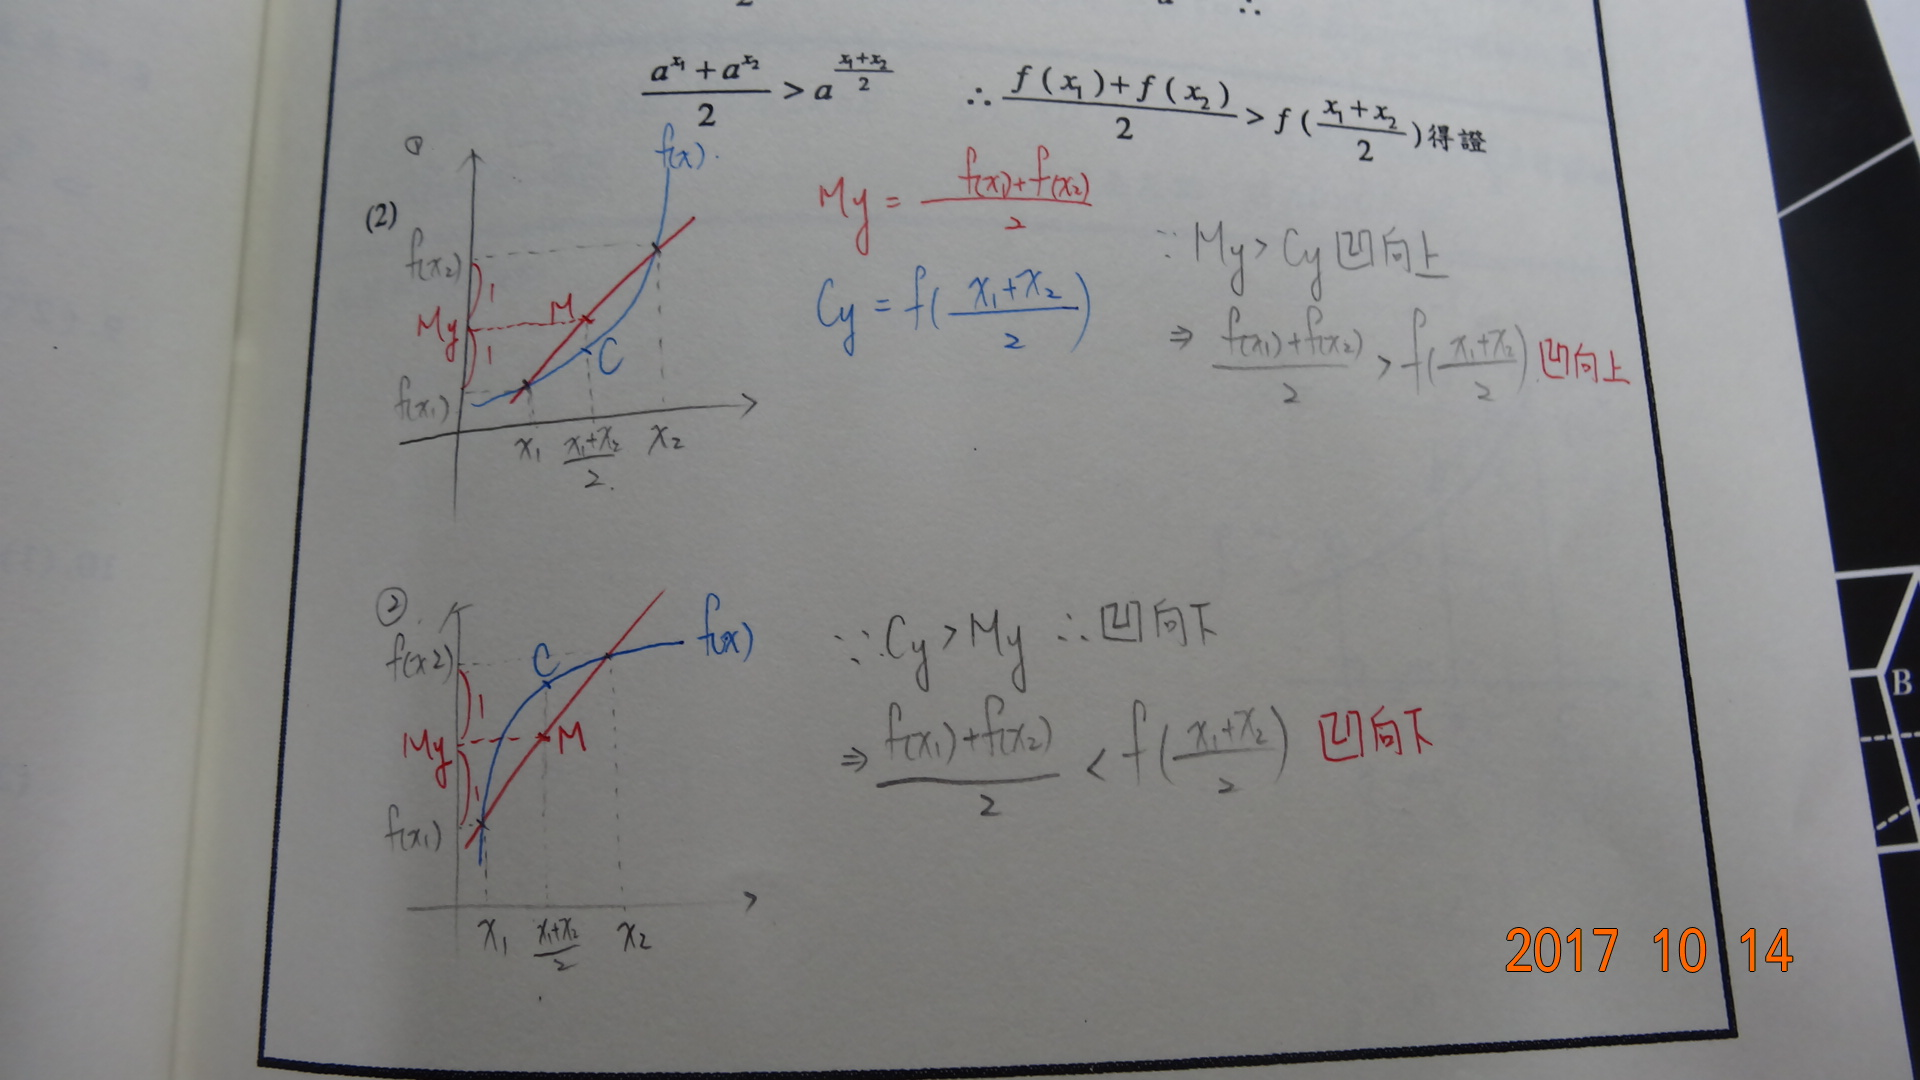 (a^{x_1} + a^{x_2})/2 > a^{(x_1+x_2)/2} ∴ (f(x_1)+f(x_2))/2 > f((x_1+x_2)/2) 得證
①
(2)
f(x).
f(x_2)
1
My
M
1
C
f(x_1)
x_1 (x_1+x_2)/2. x_2
My = (f(x_1)+f(x_2))/2
Cy = f((x_1+x_2)/2)
∵ My > Cy 凹向上
⇒ (f(x_1)+f(x_2))/2 > f((x_1+x_2)/2) 凹向上
②
f(x2)
C
f(x)
1
My
M
1
f(x_1)
x_1 (x_1+x_2)/2 x_2
∵ Cy > My ∴ 凹向下
⇒ (f(x_1)+f(x_2))/2 < f((x_1+x_2)/2) 凹向下
B
2017 10 14